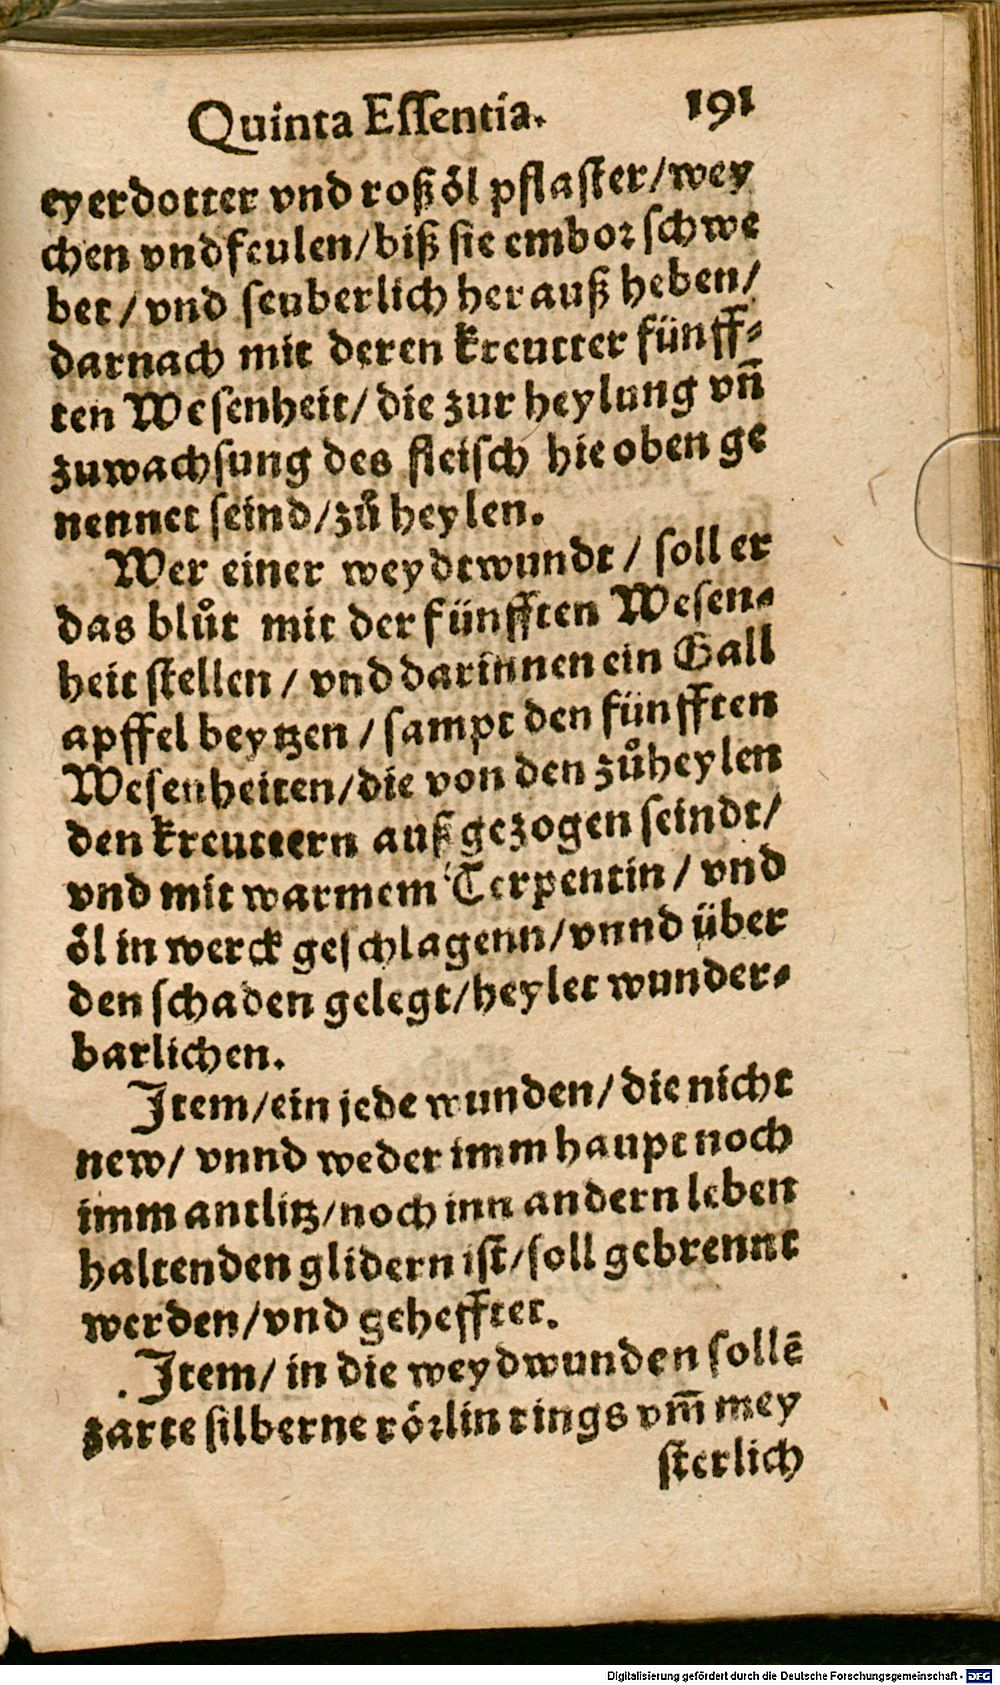 Quinta Eſſentia. 191
eyerdotter vnd roßöl pflaſter/wey
chen vnd feulen/biß ſie emboꝛ ſchwe
bet/vnd ſeuberlich herauß heben/
darnach mit deren kreutter fünff⸗
ten Weſenheit/die zur heylung vn̄
zuwachſung des fleiſch hie oben ge
nennet ſeind/zů heylen.
Wer einer weydtwundt/ſoll er
das blůt mit der fünfften Weſen⸗
heit ſtellen/vnd darinnen ein Gall
apffel beytzen/ſampt den fünfften
Weſenheiten/die von den zůheylen
den kreuttern auß gezogen ſeindt/
vnd mit warmem Terpentin/vnd
öl in werck geſchlagenn/vnnd über
den ſchaden gelegt/heylet wunder⸗
barlichen.
Item/ein jede wunden/die nicht
new/vnnd weder imm haupt noch
imm antlitz/noch inn andern leben
haltenden glidern iſt/ſoll gebrennt
werden/vnd gehefftet.
Item/in die weydwunden ſollē
zarte ſilberne röꝛlin rings vm̄ mey
ſterlich
Digitalisierung gefördert durch die Deutsche Forschungsgemeinschaft - DFG